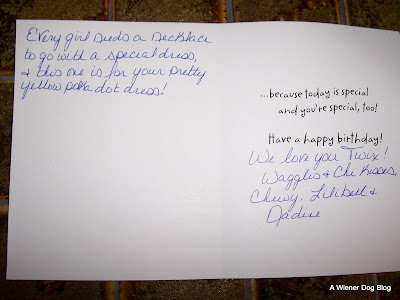 Every girl needs a necklace
to go with a special dress,
& this one is for your pretty
yellow polka dot dress!
...because today is special
and you're special, too!
Have a happy birthday!
We love you Twix!
Waggles & Chi Kisses,
Chewy, Lilibell &
Nadine
A Wiener Dog Blog